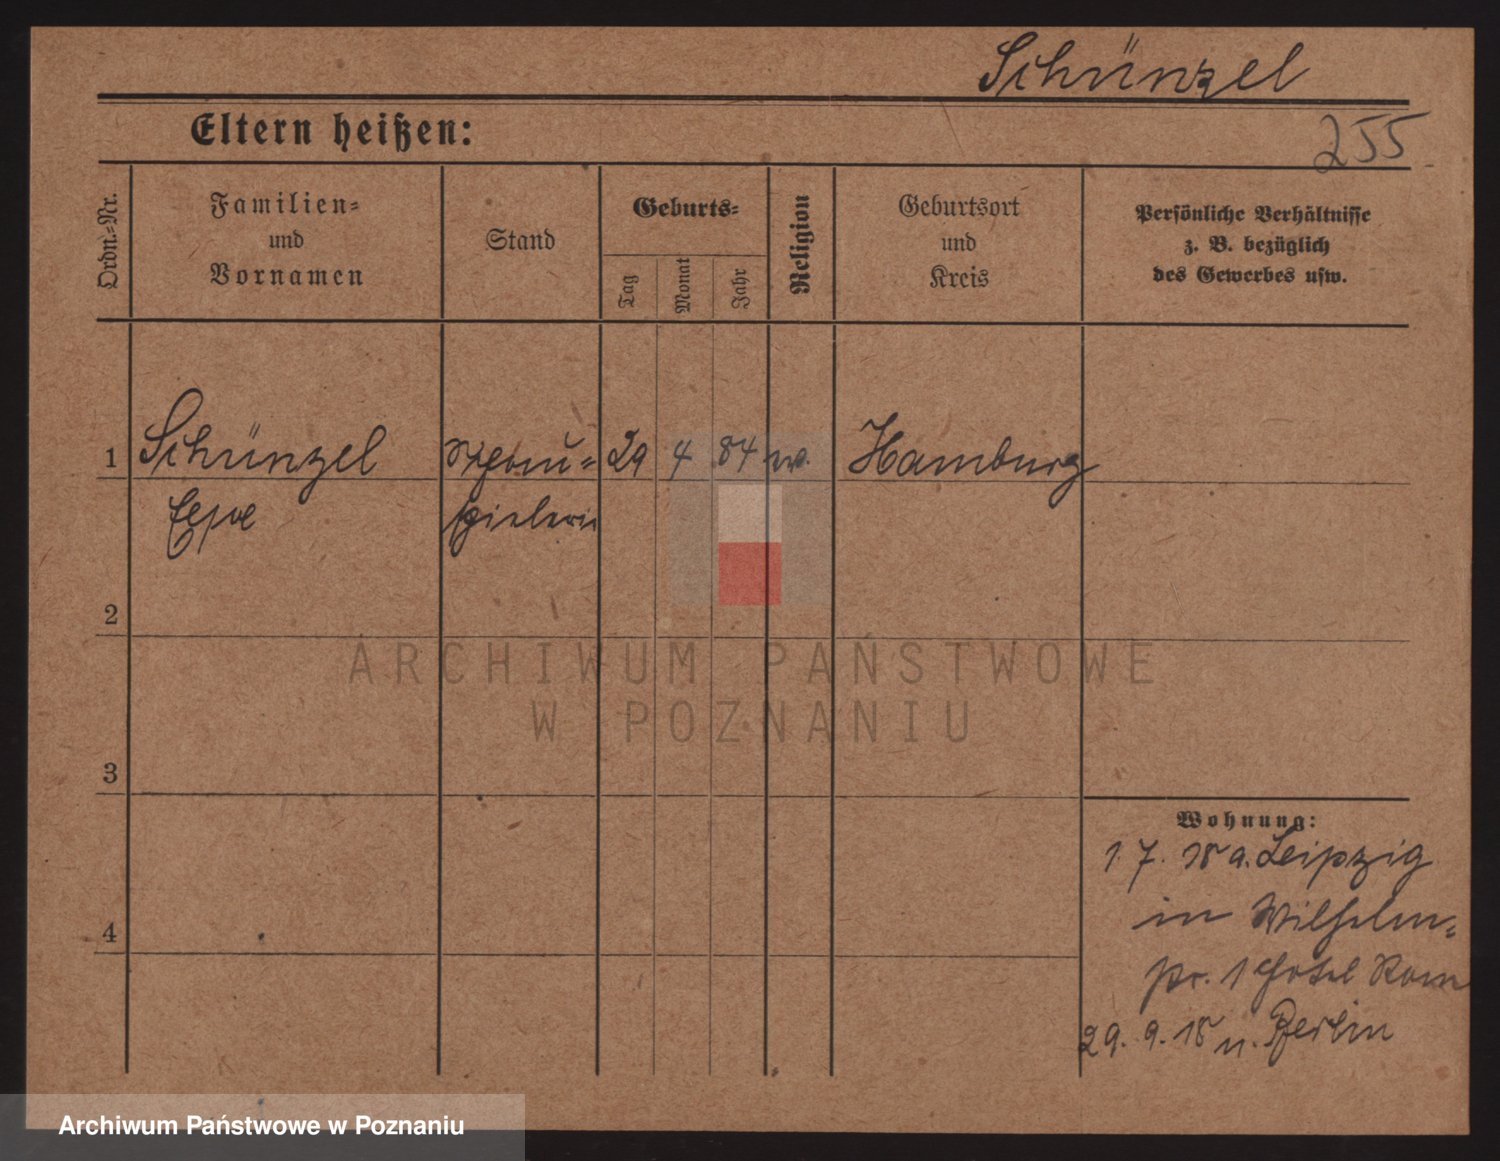 Schünzel
Eltern heißen:
255
Ordn.-Nr.
Familien-
und
Vornamen
Stand
Geburts-
Tag
Monat
Jahr
Religion
Geburtsort
und
Kreis
Persönliche Verhältnisse
z. B. bezüglich
des Gewerbes usw.
1 Schünzel Schau- 29 4 84 Hamburg
spielerin
2
ARCHIWUM PAŃSTWOWE
W POZNANIU
3
Wohnung:
1. 7. 18 a. Leipzig
in Wilhelm-
str. 1 Hotel Rom
4
29. 9. 18 n. Berlin
Archiwum Państwowe w Poznaniu